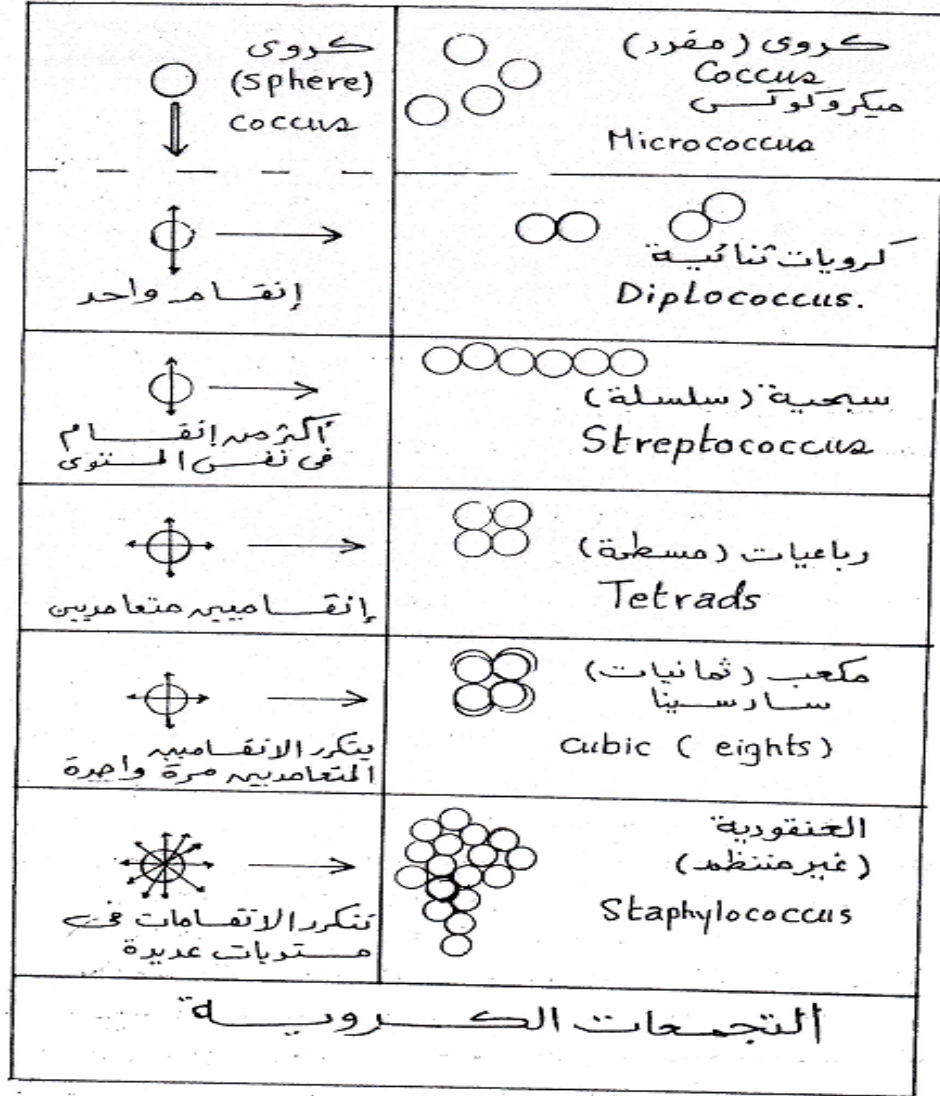 كروى
(Sphere)
coccus
كروى (مفرد)
Coccus
ميكروكوكس
Micrococcus
إنقسام واحد
كرويات ثنائية
Diplococcus.
أكثر من إنقسام
فى نفس المستوى
سبحية (سلسلة)
Streptococcus
إنقساميين متعامديين
رباعيات (مسطحة)
Tetrads
يتكرر الانقساميين
المتعامديين مرة واحدة
مكعب (ثمانيات)
سارسينا
cubic ( eights )
تتكرر الانقسامات فى
مستويات عديدة
العنقودية
(غير منتظم)
Staphylococcus
التجمعات الكروية